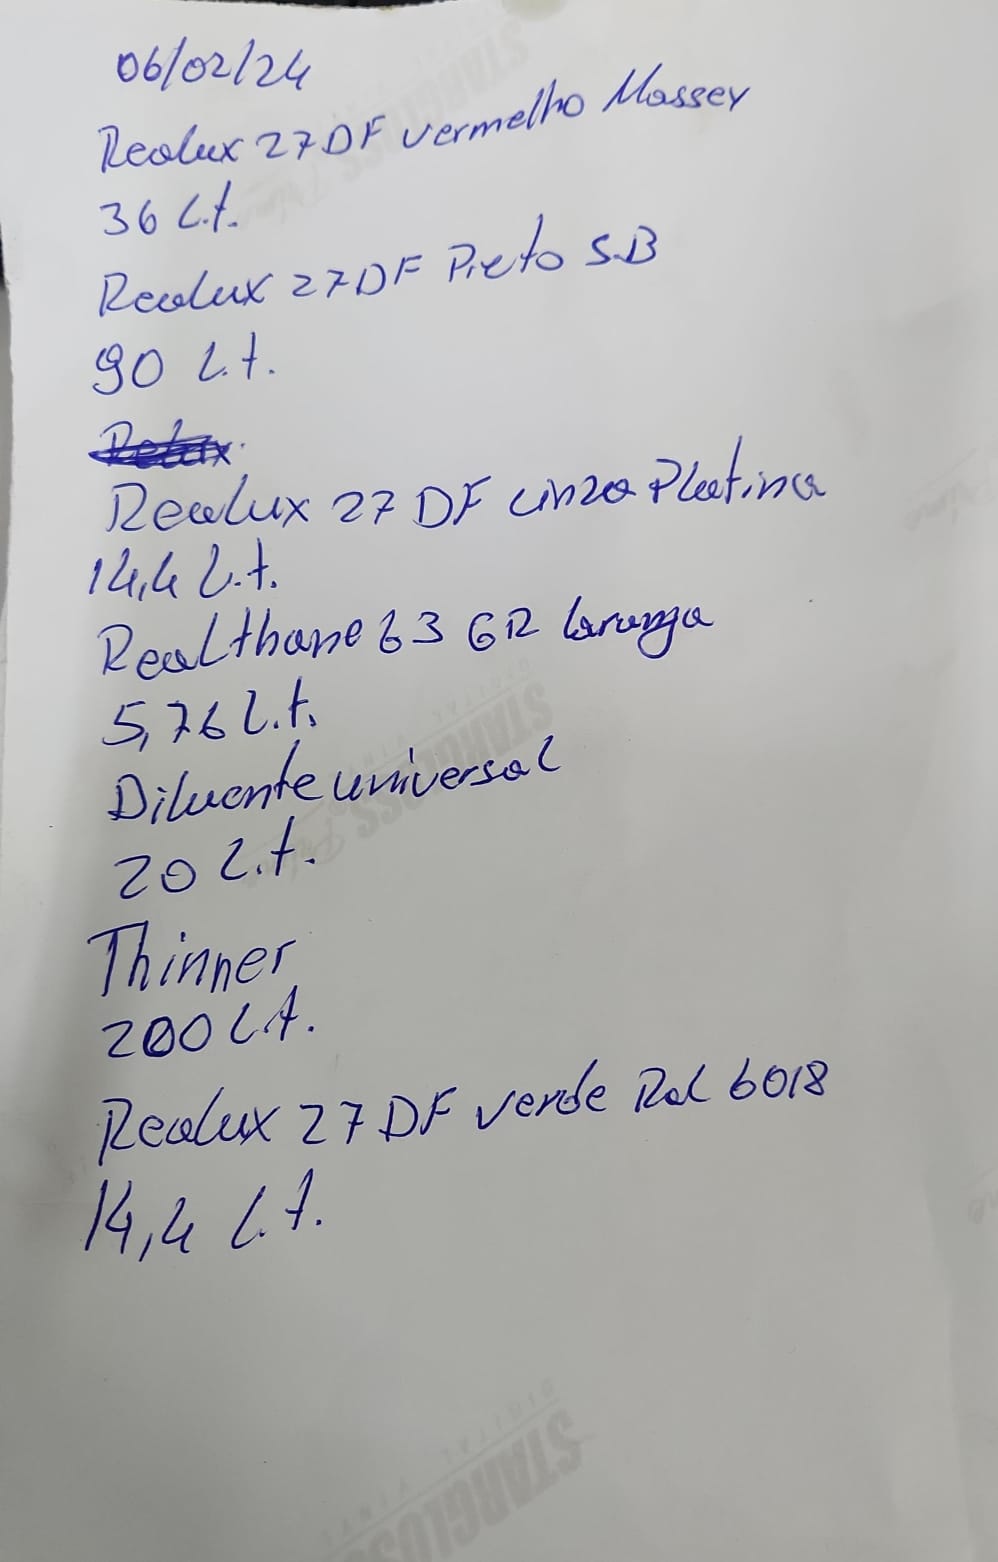 06/02/24
Realux 27DF vermelho Massey
36 L.t.
Realux 27DF Preto S.B
90 L.t.
Realux 27 DF cinza Platina
14,4 L.t.
Realthane 63 GR laranja
5,76 L.t.
Diluente universal
20 L.t.
Thinner
200 L.t.
Realux 27 DF verde Ral 6018
14,4 L.t.
STARGLOSS
DIGITAL VINYL
STARGLOSS
DIGITAL VINYL